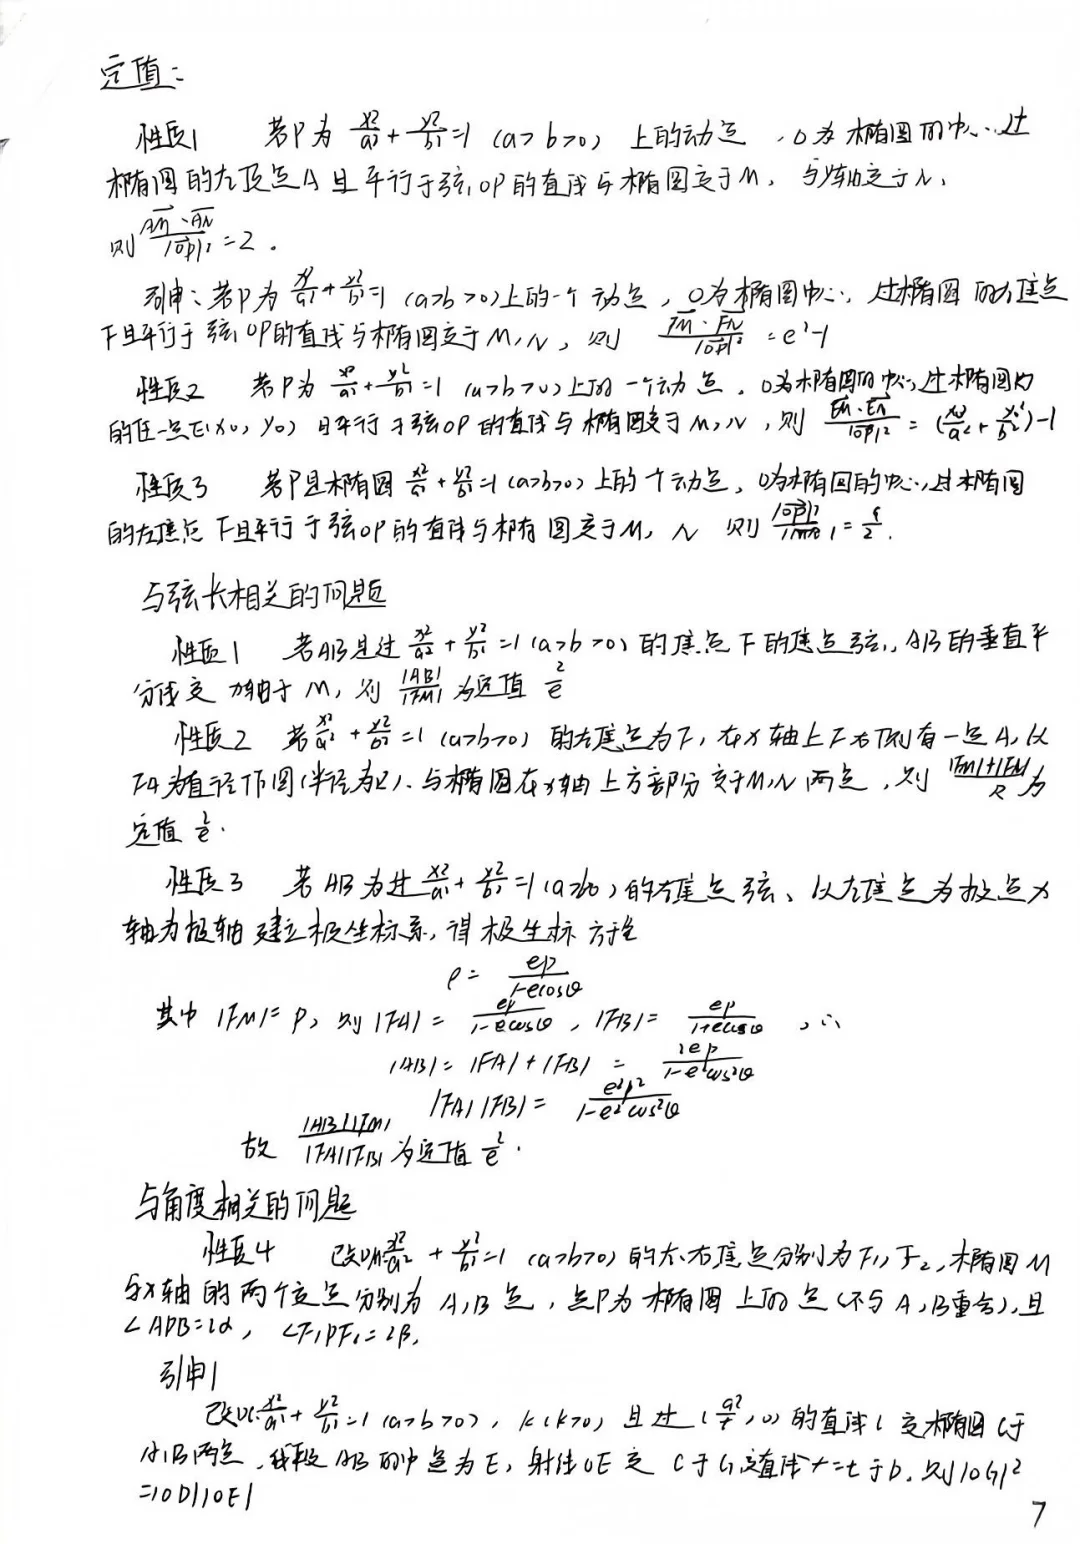 定值:
性质1 若P为 x²/a² + y²/b² = 1 (a>b>0) 上的动点, O为椭圆的中心, 过
椭圆的左顶点A且平行于弦OP的直线与椭圆交于M, 与y轴交于N,
则 AM·AN/|OP|² = 2.
引申: 若P为 x²/a² + y²/b² = 1 (a>b>0)上的一个动点, O为椭圆中心, 过椭圆的左焦点
F且平行于弦OP的直线与椭圆交于M,N, 则 FM·FN/|OP|² = e²-1
性质2 若P为 x²/a² + y²/b² = 1 (a>b>0)上的一个动点, O为椭圆的中心, 过椭圆内
的任一点E(x₀, y₀) 且平行于弦OP的直线与椭圆交于M,N, 则 EM·EN/|OP|² = (x₀²/a² + y₀²/b²)-1
性质3 若P是椭圆 x²/a² + y²/b² = 1 (a>b>0) 上的个动点, O为椭圆的中心, 过椭圆
的左焦点F且平行于弦OP的直线与椭圆交于M, N 则 |OP|²/|MN| = a/2.
与弦长相关的问题
性质1 若AB是过 x²/a² + y²/b² = 1 (a>b>0) 的焦点F的焦点弦, AB的垂直平
分线交 轴于M, 则 |AB|/|FM| 为定值 2/e
性质2 若 x²/a² + y²/b² = 1 (a>b>0) 的左焦点为F, 在x轴上F右侧有一点A, 以
FA为直径作圆(半径为R), 与椭圆在x轴上方部分交于M,N两点, 则 |FM|+|FN|/R 为
定值 2/e.
性质3 若AB为过 x²/a² + y²/b² = 1 (a>b>0)的左焦点弦, 以左焦点为极点x
轴为极轴建立极坐标系, 得极坐标方程
ρ = ep/1-ecosθ
其中 |FM| = p, 则 |FA| = ep/1-ecosθ, |FB| = ep/1+ecosθ, ∴
|AB| = |FA| + |FB| = 2ep/1-e²cos²θ
|FA||FB| = e²p²/1-e²cos²θ
故 |AB||FM|/|FA||FB| 为定值 2/e.
与角度相关的问题
性质4 已知 x²/a² + y²/b² = 1 (a>b>0) 的左右焦点分别为F₁, F₂, 椭圆M
与x轴的两个交点分别为A,B点, 点P为椭圆上的点(不与A,B重合), 且
∠APB=2α, ∠F₁PF₂=2β.
引申1
已知C: x²/a² + y²/b² = 1 (a>b>0), k(k>0) 且过 (a²/t, 0) 的直线l交椭圆C于
A,B两点, 线段AB的中点为E, 射线OE交C于G, 交直线x=t于D, 则|OG|²
=|OD||OE|
7